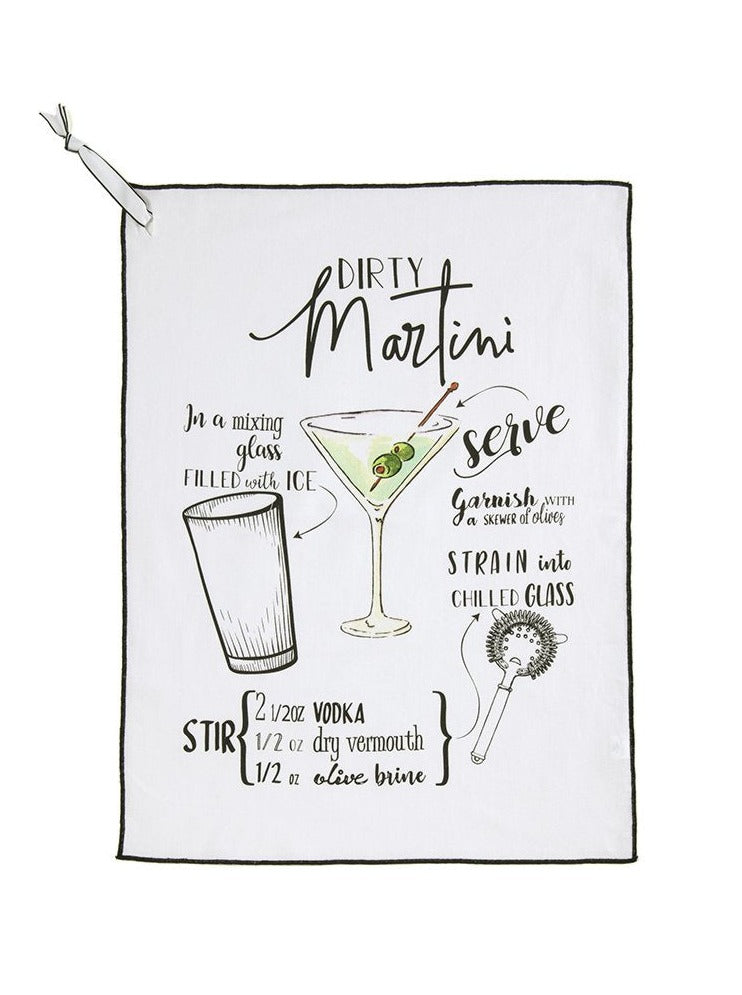 DIRTY
Martini
In a mixing
glass
FILLED with ICE
STIR
2 1/2oz VODKA
1/2 oz dry vermouth
1/2 oz olive brine
STRAIN into
CHILLED GLASS
Garnish WITH
a SKEWER of olives
serve